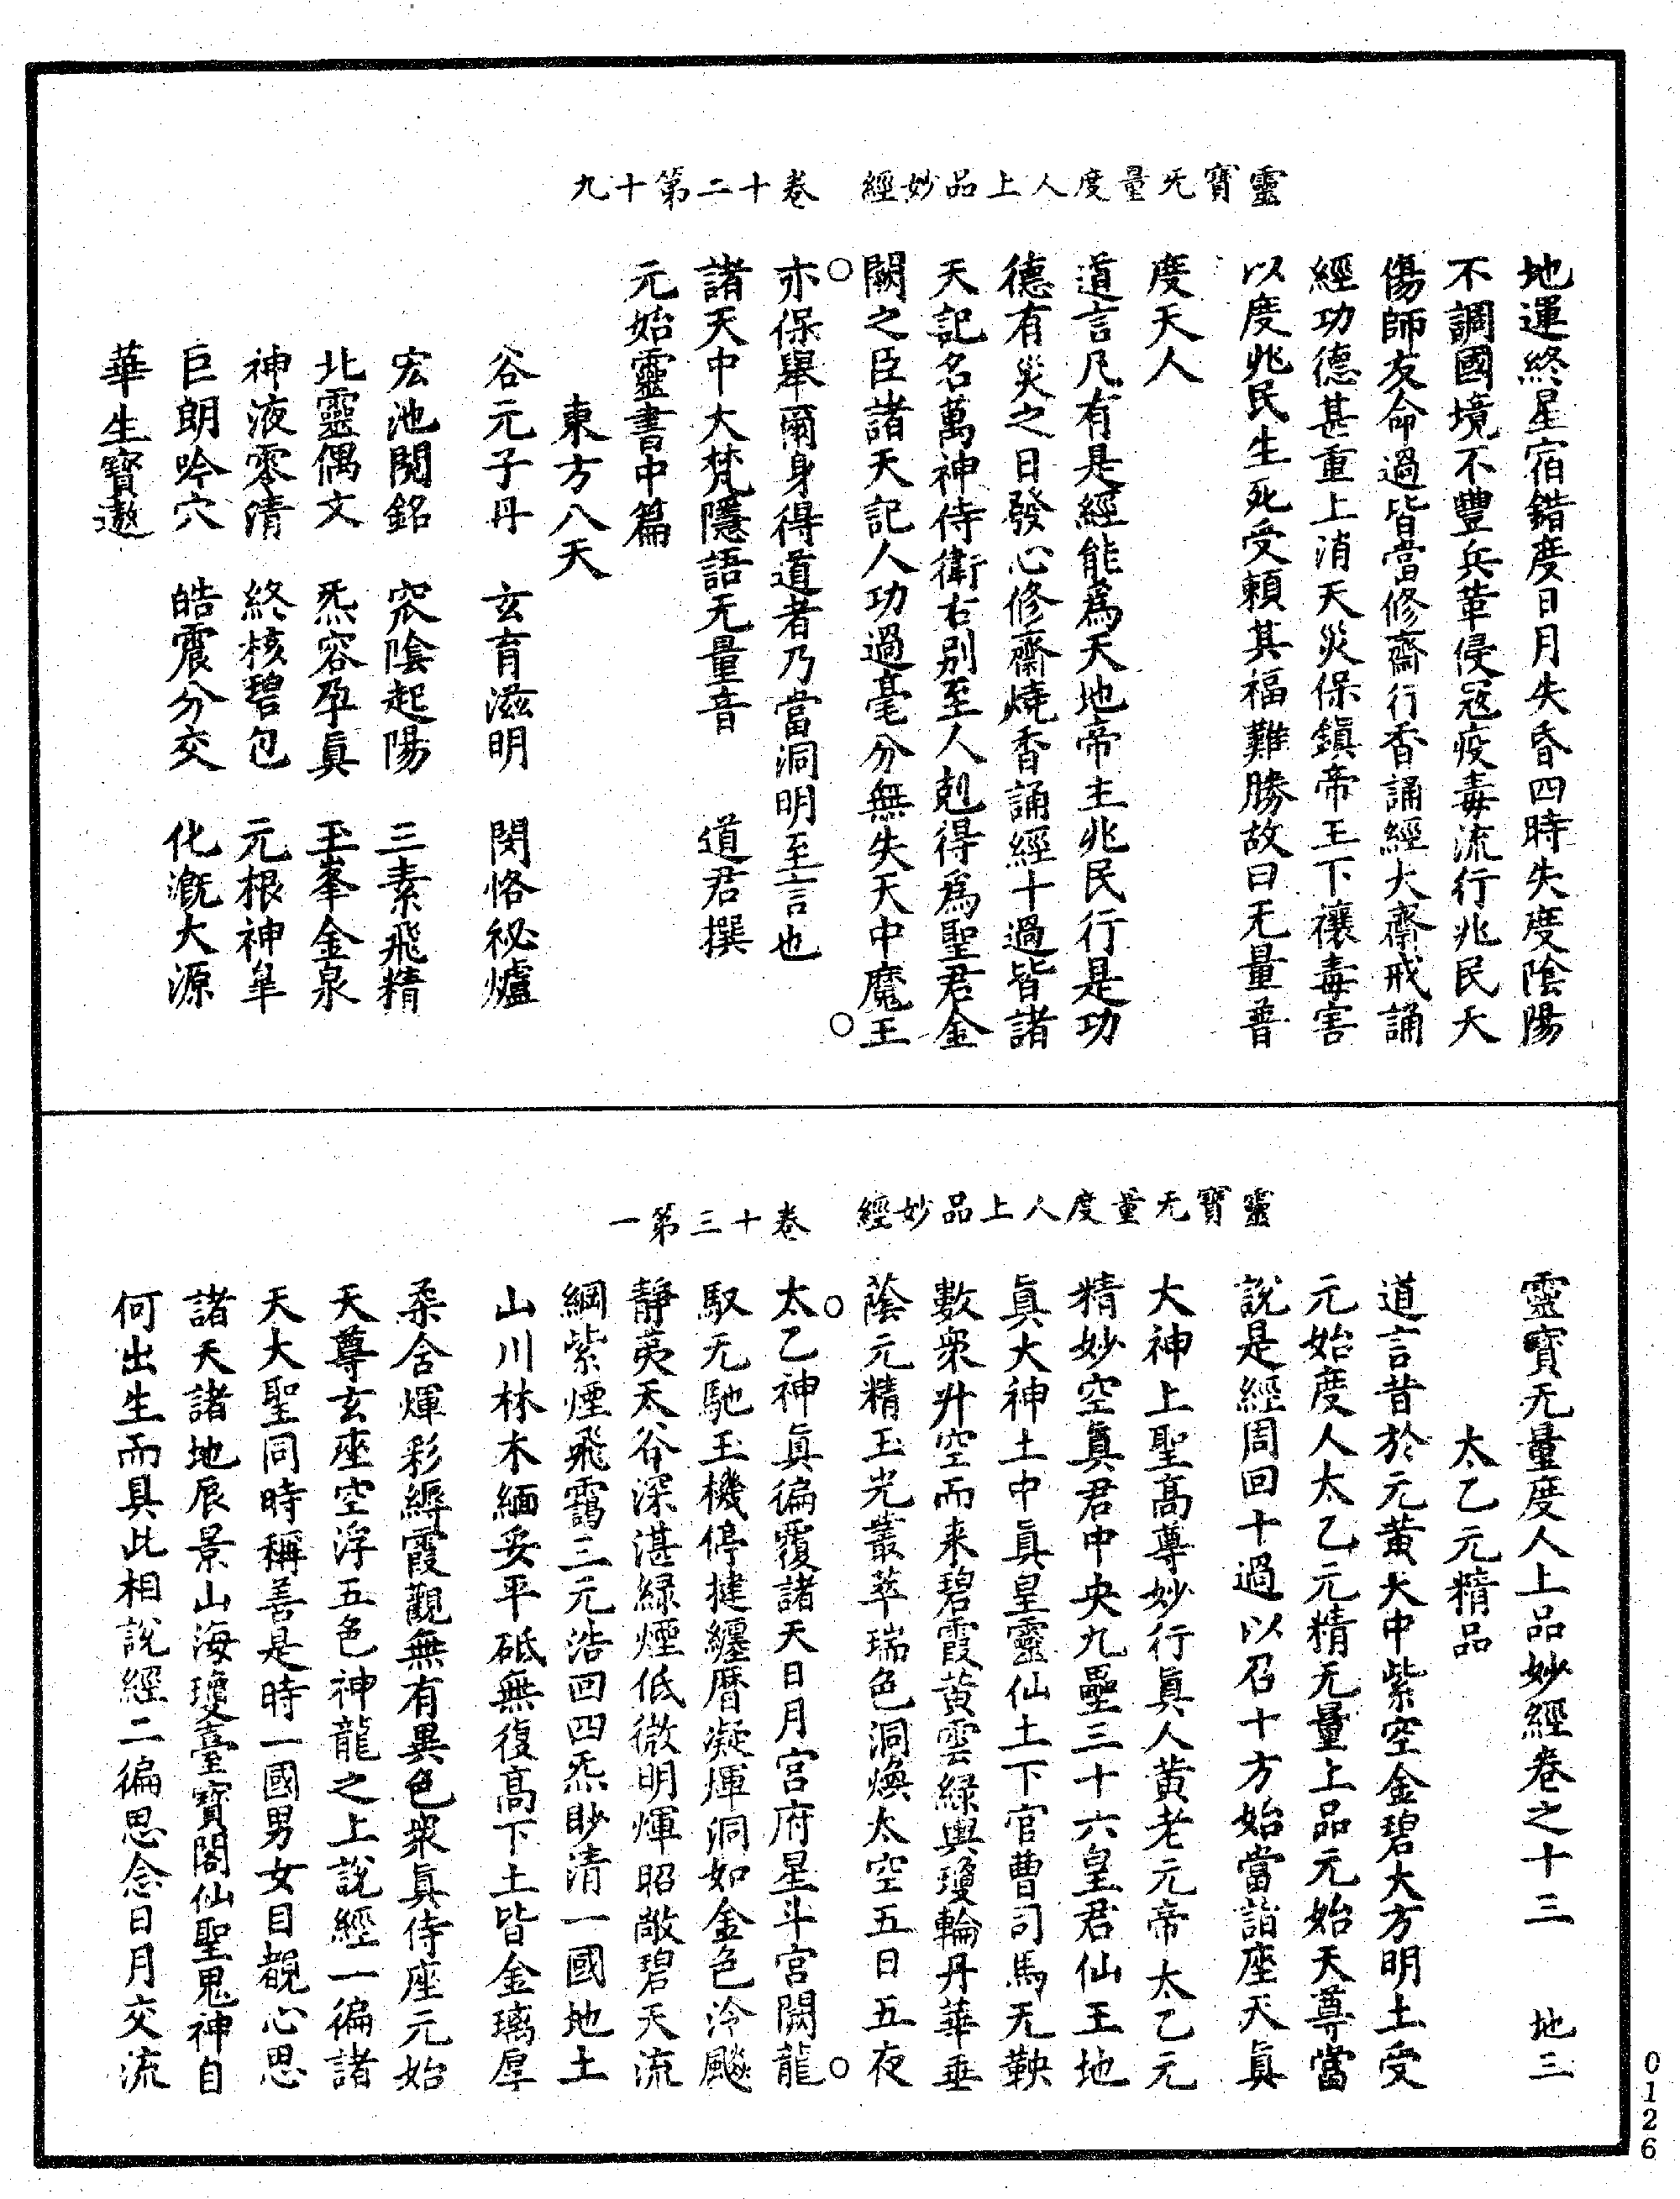 靈寶无量度人上品妙經　卷十二第十九
地運終星宿錯度日月失昏四時失度陰陽
不調國境不豐兵革侵寇疫毒流行兆民夭
傷師友命過皆當修齋行香誦經大齋戒誦
經功德甚重上消天災保鎮帝王下禳毒害
以度兆民生死受賴其福難勝故曰无量普
度天人
道言凡有是經能爲天地帝主兆民行是功
德有災之日發心修齋燒香誦經十過皆諸
天記名萬神侍衛右別至人剋得爲聖君金
闕之臣諸天記人功過毫分無失天中魔王
亦保舉爾身得道者乃當洞明至言也
諸天中大梵隱語无量音　道君撰
元始靈書中篇
東方八天
谷元子丹　玄育滋明　閔恪祕爐
宏池閱銘　冥陰起陽　三素飛精
北靈偶文　炁容孕眞　玉峯金泉
神液零清　終核碧包　元根神皐
巨朗吟穴　皓震分交　化溉大源
華生寶遨
靈寶无量度人上品妙經　卷十三第一
靈寶无量度人上品妙經卷之十三　地三
太乙元精品
道言昔於元黃大中紫空金碧大方明土受
元始度人太乙元精无量上品元始天尊當
說是經周回十過以召十方始當詣座天眞
大神上聖高尊妙行眞人黃老元帝太乙元
精妙空眞君中央九壘三十六皇君仙王地
眞大神土中眞皇靈仙土下官曹司馬无鞅
數衆升空而来碧霞黃雲綠輿瓊輪丹華垂
蔭元精玉光叢萃瑞色洞煥太空五日五夜
太乙神眞徧覆諸天日月宮府星斗宮闕龍
馭无馳玉機停揵纏曆凝煇洞如金色泠飈
靜荑夭谷深湛綠煙低微明煇昭敞碧天流
綱紫煙飛靄三元浩回四炁眇清一國地土
山川林木緬妥平砥無復高下土皆金璃厚
柔含煇彩縟霞觀無有異色衆眞侍座元始
天尊玄座空浮五色神龍之上說經一徧諸
天大聖同時稱善是時一國男女目覩心思
諸天諸地辰景山海瓊臺寶閣仙聖鬼神自
何出生而具此相說經二徧思念日月交流
0126